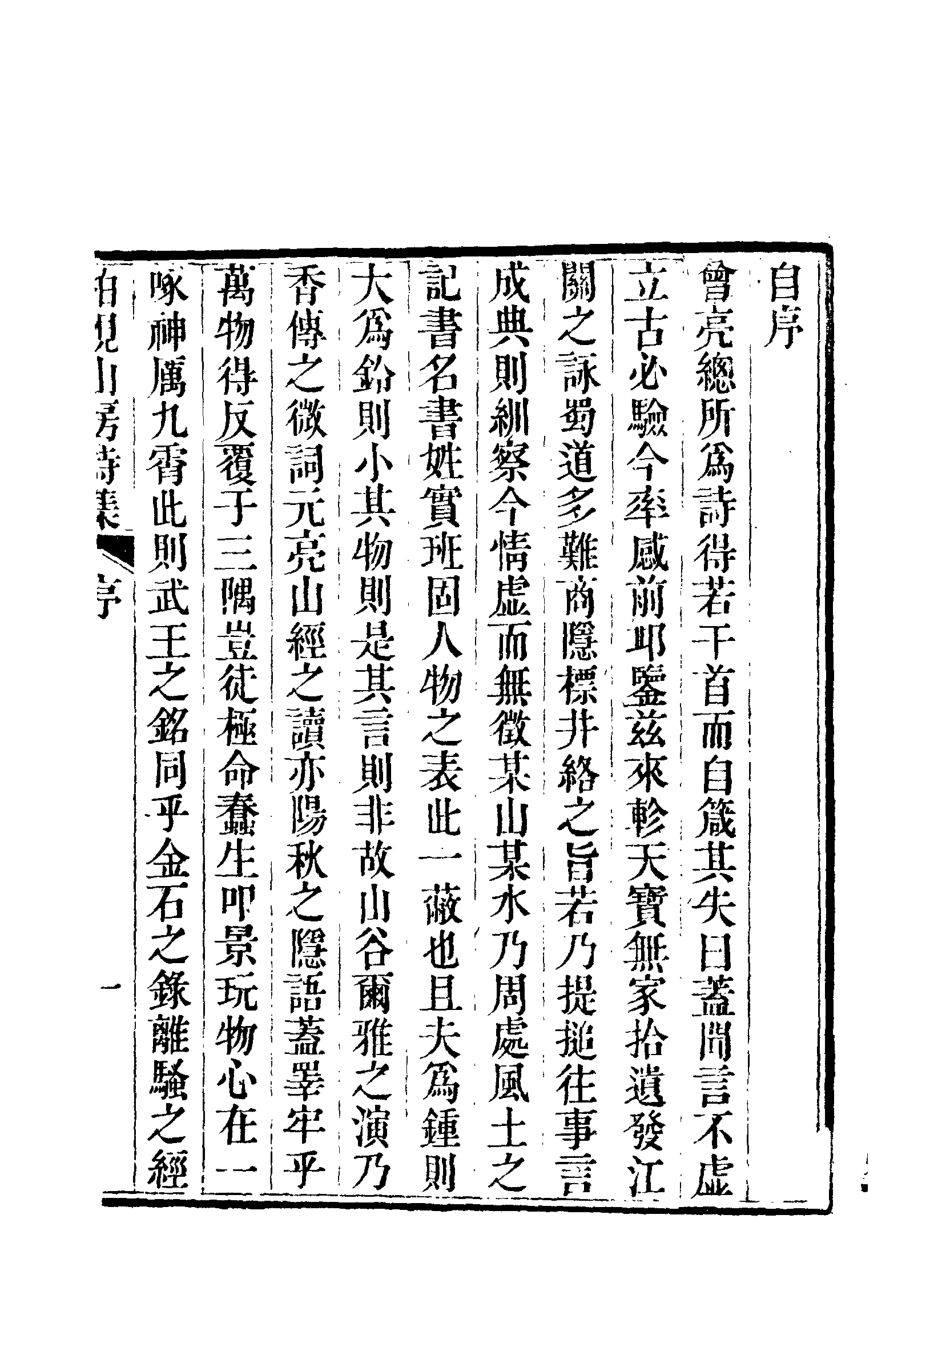 自序
曾亮總所爲詩得若干首而自箴其失曰蓋聞言不虛
立古必驗今率感前卭鑒兹來軫天寶無家拾遺發江
關之詠蜀道多難商隱標井絡之旨若乃提搥往事言
成典則紃察今情虛而無徵某山某水乃周處風土之
記書名書姓實班固人物之表此一蔽也且夫爲鍾則
大爲鈴則小其物則是其言則非故山谷爾雅之演乃
香傳之微詞元亮山經之讀亦陽秋之隱語蓋睪牢乎
萬物得反覆于三隅豈徒極命蠢生叩景玩物心在一
啄神厲九霄此則武王之銘同乎金石之錄離騷之經
柏梘山房詩集 序 一